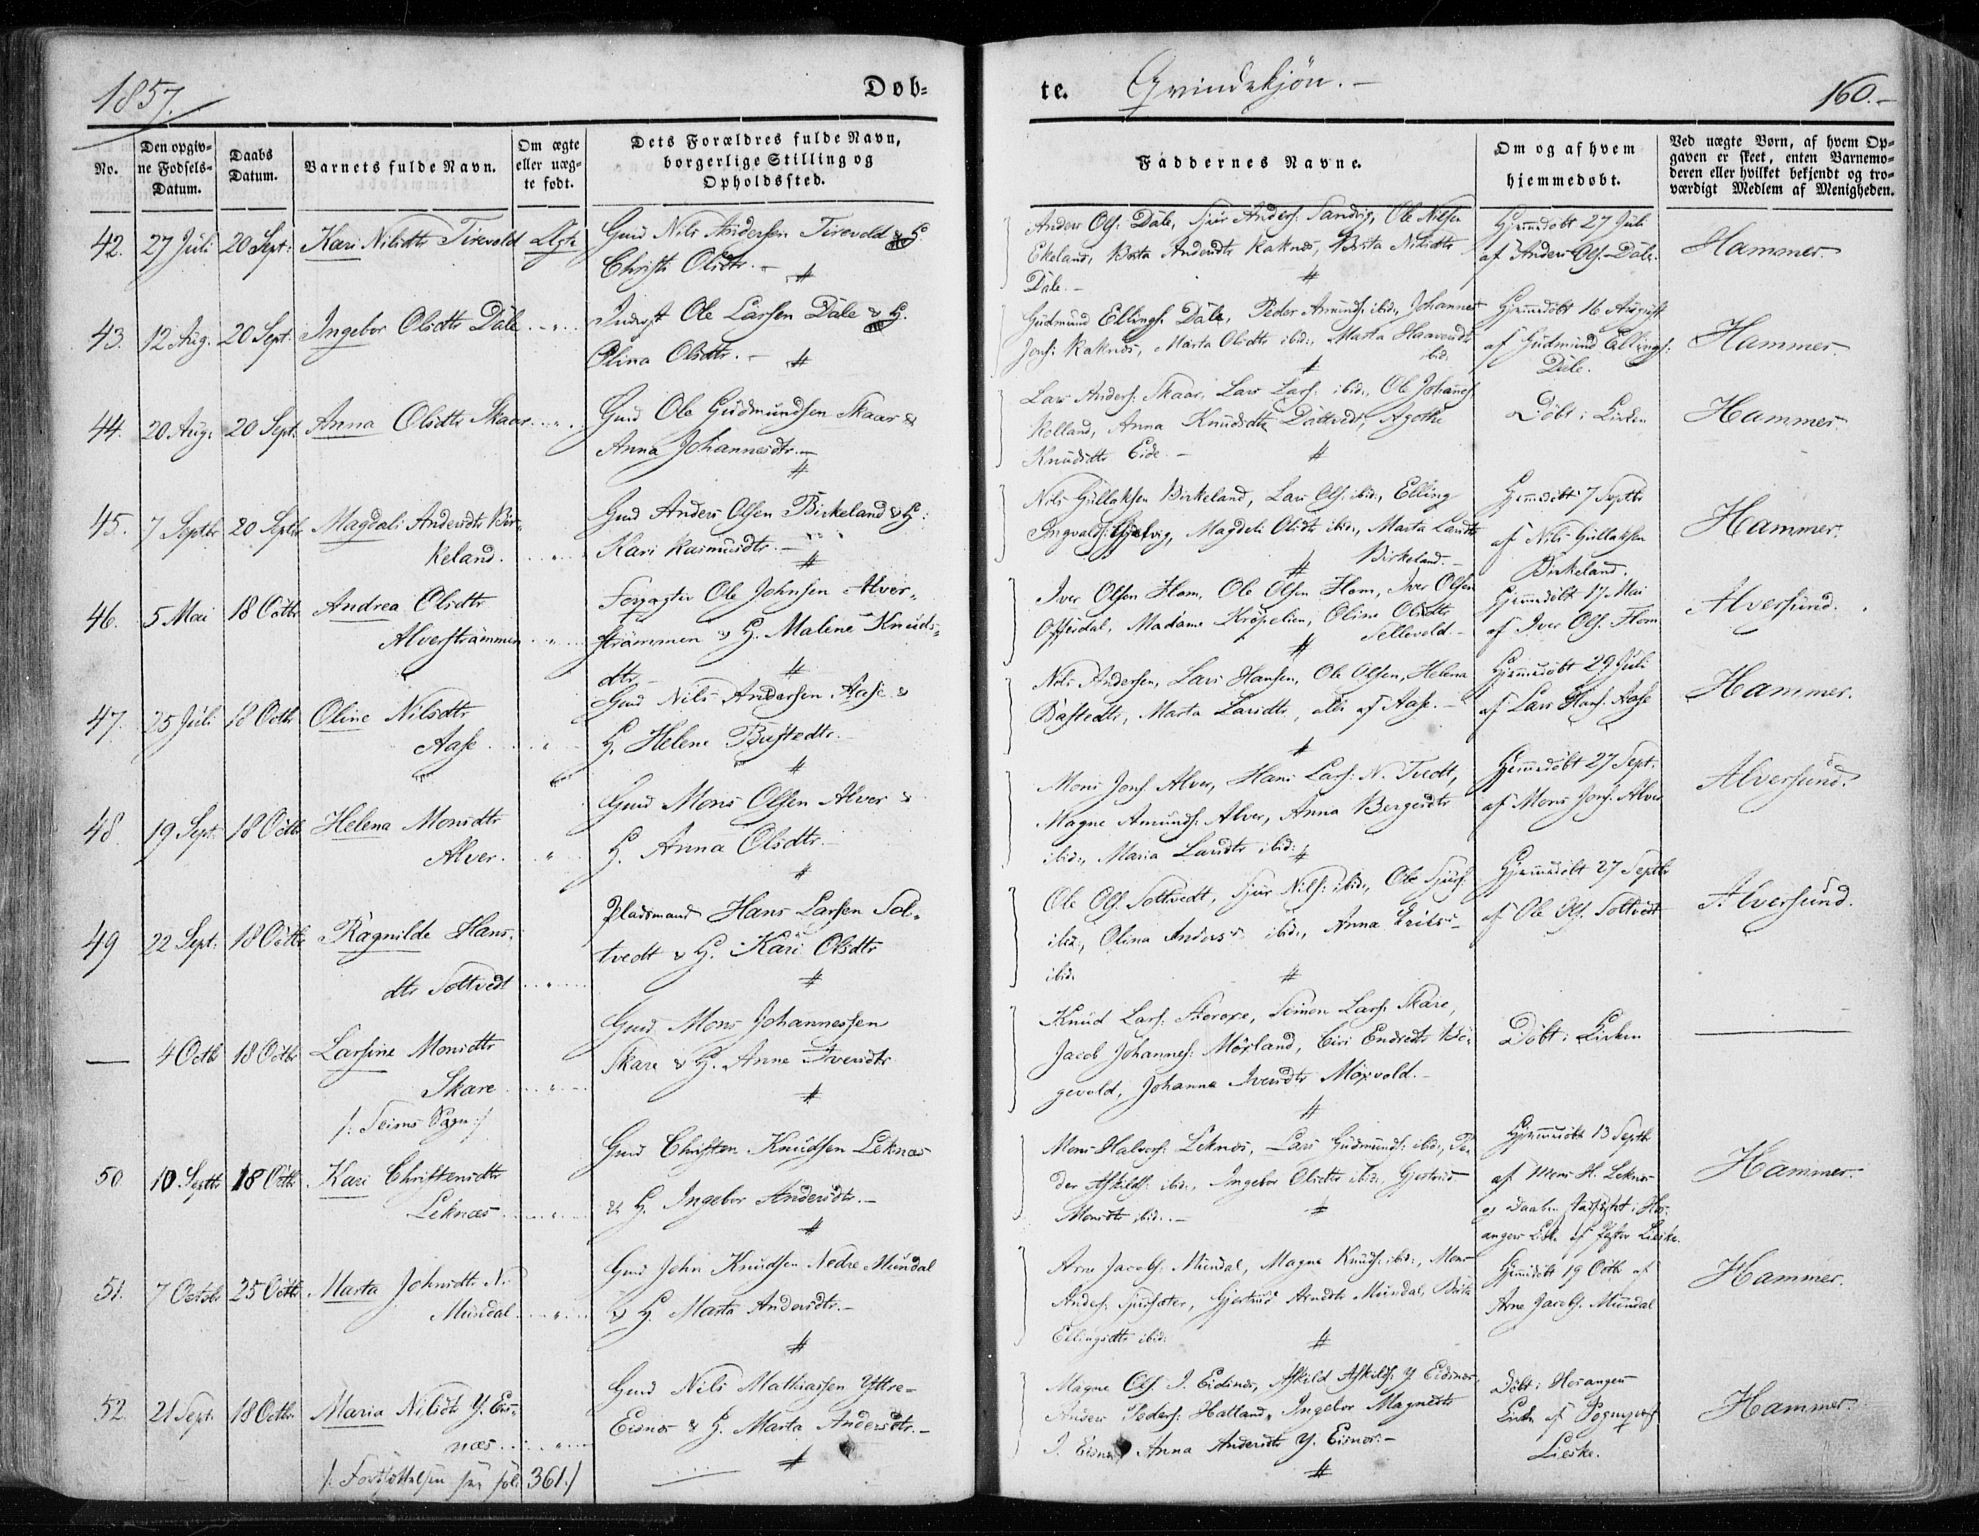 1857.
Døb-
te.
Qvindekjøn.-
160.-
No.
Den opgiv-
ne Fødsels-
Datum.
Daabs
Datum.
Barnets fulde Navn.
Om ægte
eller uæg-
te født.
Dets Forældres fulde Navn,
borgerlige Stilling og
Opholdssted.
Faddernes Navne.
Om og af hvem
hjemmedøbt.
Ved uægte Børn, af hvem Op-
gaven er skeet, enten Barnemo-
deren eller hvilket bekjendt og tro-
værdigt Medlem af Menigheden.
42. 27 Juli 20 Sept: Kari Nilsdtr Tirevold Ægte
Gmd Nils Andersen Tirevold & H.
Christi Olsdtr.-
Anders Ols. Dale, Sjur Anders: Sandvig, Ole Nilsen
Ekeland, Brita Andersdtr Raknes, Brita Nilsdtr
Dale.-
Hjemmedøbt 27 Juli
af Anders Ols. Dale.
Hammer.
43. 12 Aug. 20 Sept. Ingebor Olsdtr Dale
Inderst Ole Larsen Dale & H.
Olina Olsdtr.-
Gudmund Ellings. Dale, Peder Amunds: ibid., Johannes
Jons: Raknes, Marta Olsdtr ibid., Marta Haavardsdtr
ibid.
Hjemmedøbt 16 August
af Gudmund Ellings:
Dale.
Hammer.
44. 20 Aug. 20 Sept. Anna Olsdtr Skaar
Gmd Ole Gudmundsen Skaar &
Anna Johannesdtr.-
Lars Anders: Skaar, Lars Lars: ibid., Ole Johannes:
Holland, Anna Knudsdtr Dottvedt, Agothe
Knudsdtr Eide.-
Døbt i Kirken
Hammer.
45. 7 Septbr 20 Septbr Magdali Andersdtr Bir-
keland.
Gmd Anders Olsen Birkeland & H:
Kari Rasmusdtr.-
Nils Gullaksen Birkeland, Lars Ols. ibid., Elling
Ingvalds: Hjelvig, Magdeli Olsdtr ibid., Marta Larsdtr
Birkeland.-
Hjemmedøbt 7 Septbr
af Nils Gullaksen
Birkeland.
Hammer.
46. 5 Mai 18 Octbr Andrea Olsdtr
Alverstrømmen
Forpagter Ole Johnsen Alver-
strømmen & H. Malene Knuds-
dtr.-
Iver Olsen Hom, Ole Olsen Hom, Iver Olsen
Offerdal, Madame Krøpelien, Oline Olsdtr
Sellevold.-
Hjemmedøbt 17 Mai
af Iver Ols. Hom
Alversund.
47. 25 Juli 18 Octbr Oline Nilsdtr
Aase
Gmd Nils Andersen Aase &
H. Helene Bastedtr.-
Nils Andersen, Lars Hansen, Ole Olsen, Helena
Bastedtr, Marta Larsdtr, alle af Aase.-
Hjemmedøbt 29 Juli
af Lars Hans. Aase
Hammer.
48. 19 Sept. 18 Octbr Helena Monsdtr
Alver.
Gmd Mons Olsen Alver &
H. Anna Olsdtr.-
Mons Jons. Alver, Hans Lars: N. Tvedt,
Magne Amunds: Alver, Anna Bergesdtr
ibid., Maria Larsdtr ibid:
Hjemmedøbt 27 Sept.
af Mons Jons: Alver
Alversund.
49 22 Sept. 18 Octbr Ragnilde Hans-
dtr Soltvedt
Pladsmand Hans Larsen Sol-
tvedt & H. Kari Olsdtr
Ole Ols. Soltvedt, Sjur Nils: ibid., Ole Sjurs:
ibid., Olina Anders- ibid., Anna Nils-
ibid.
Hjemmedøbt 27 Septbr
af Ole Ols. Soltvedt
Alversund.
— 4 Octb 18 Octbr Larsine Monsdtr
Skare
/: Seims Sogn:/
Gmd. Mons Johannessen
Skare & H. Anne Iversdtr
Knud Lars. Skare, Simon Lars: Skare,
Jacob Johannes: Moxland, Siri Endredtr Bø-
gevold, Johanna Iversdtr Moxvold.-
Døbt i Kirken
50 10 Septbr 18 Octbr Kari Christensdtr
Leknæs
Gmd Christen Knudsen Leknæs
& H. Ingebor Andersdtr.-
Mons Halvors: Leknes, Lars Gudmunds: ibid., Pe-
der Askilds: ibid., Ingebor Olsdtr ibid., Gjertrud
Monsdtr ibid.-
Hjemmedøbt 13 Septb
af Mons H. Leknes
og Daaben stadfæstet i Hos-
anger Kirke af Pastor Lieske.
Hammer.
51. 7 Octobr 25 Octbr Marta Johnsdtr N.
Mundal
Gmd John Knudsen Nedre Mundal
& H. Marta Andersdtr.-
Arne Jacobs. Mundal, Magne Knuds: ibid., Mons
Anders. Sjursæter, Gjertrud Arnedtr Mundal, Brita
Ellingsdtr ibid:
Hjemmedøbt 19 Octbr af
Arne Jacobs. Mundal
Hammer.
52. 21 Sept. 18 Octbr. Maria Nilsdtr Y. Eids-
næs
/: Fortsættelsen see fol: 361:/
Gmd Nils Mathiassen Yttre-
Eidnes & H. Marta Andersdtr.-
Magne Ols. I. Eidsnes, Askild Askilds: Y. Eidsnes,
Anders Peders: Hatland, Ingebor Magnedtr
I. Eidsnes, Anna Andersdtr Y. Eisnes.-
Døbt i Hosanger
Kirke af Sognepræst
Lieske.
Hammer.